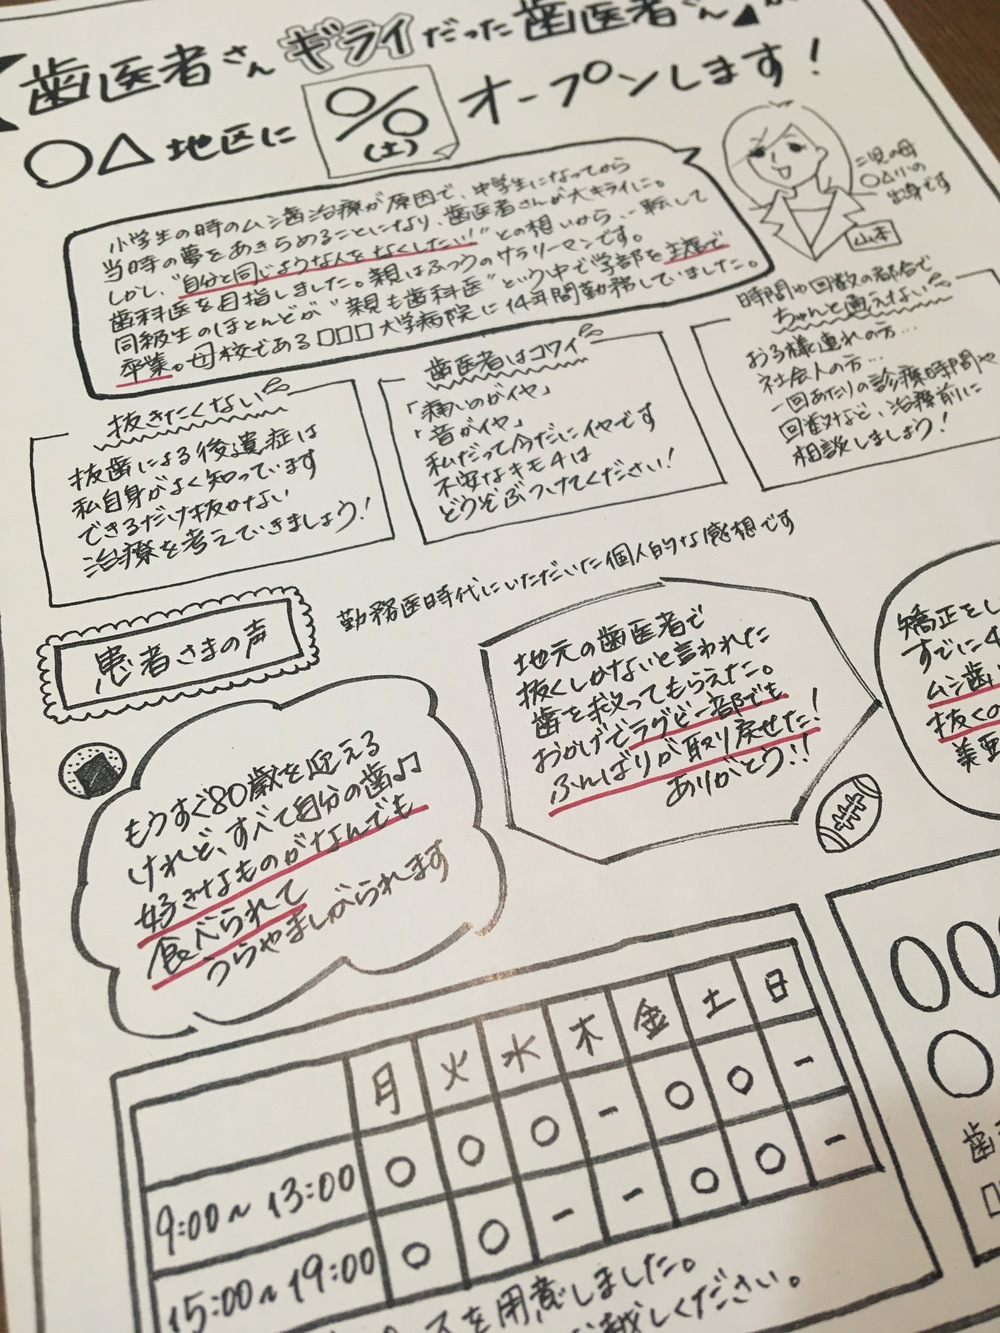 【歯医者さんギライだった歯医者さん】が
○△地区に ○/○ (土) オープンします!
二児の母
○△小の
出身です
山本
小学生の時のムシ歯治療が原因で、中学生になってから
当時の夢をあきらめることになり、歯医者さんが大キライに。
しかし、"自分と同じような人をなくしたい!"との想いから、一転して
歯科医を目指しました。親はふつうのサラリーマンです。
同級生のほとんどが"親も歯科医"という中で学部を主席で
卒業。母校である□□□大学病院に14年間勤務していました。
抜きたくない
抜歯による後遺症は
私自身がよく知っています
できるだけ抜かない
治療を考えていきましょう!
歯医者はコワイ
「痛いのがイヤ」
「音がイヤ」
私だって今だにイヤです
不安なキモチは
どうぞぶつけてください!
時間や回数の都合で
ちゃんと通えない
お子様連れの方…
社会人の方…
一回あたりの診療時間や
回数など、治療前に
相談しましょう!
患者さまの声
勤務医時代にいただいた個人的な感想です
もうすぐ80歳を迎える
けれど、すべて自分の歯♪♫
好きなものがなんでも
食べられて
うらやましがられます
地元の歯医者で
抜くしかないと言われた
歯を救ってもらえた。
おかげでラグビー部でも
ふんばりが取り戻せた!
ありがとう!!
矯正をし
すでに4
ムシ歯
抜くの
月 火 水 木 金 土 日
9:00~13:00 ○ ○ ○ - ○ ○ -
15:00~19:00 ○ ○ - - ○ ○ -
スを用意しました。
越しください。
○○
○
歯